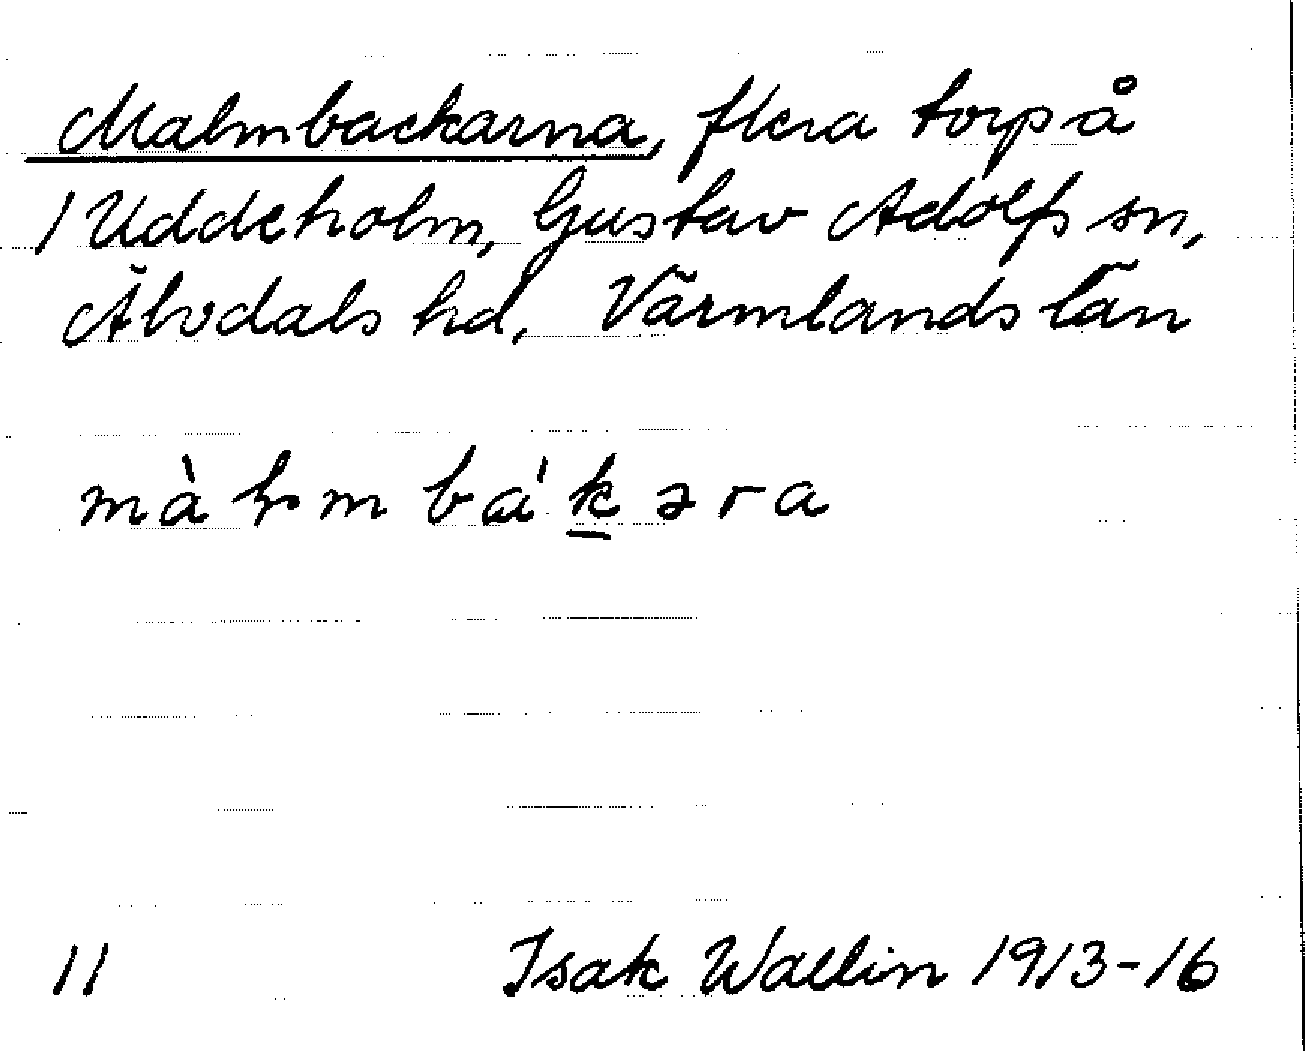 Malmbackarna, flera torp å
1 Uddeholm, Gustav Adolfs sn,
Älvdals hd, Värmlands län
màɫm bá'k̲əra
11 Isak Wallin 1913-16